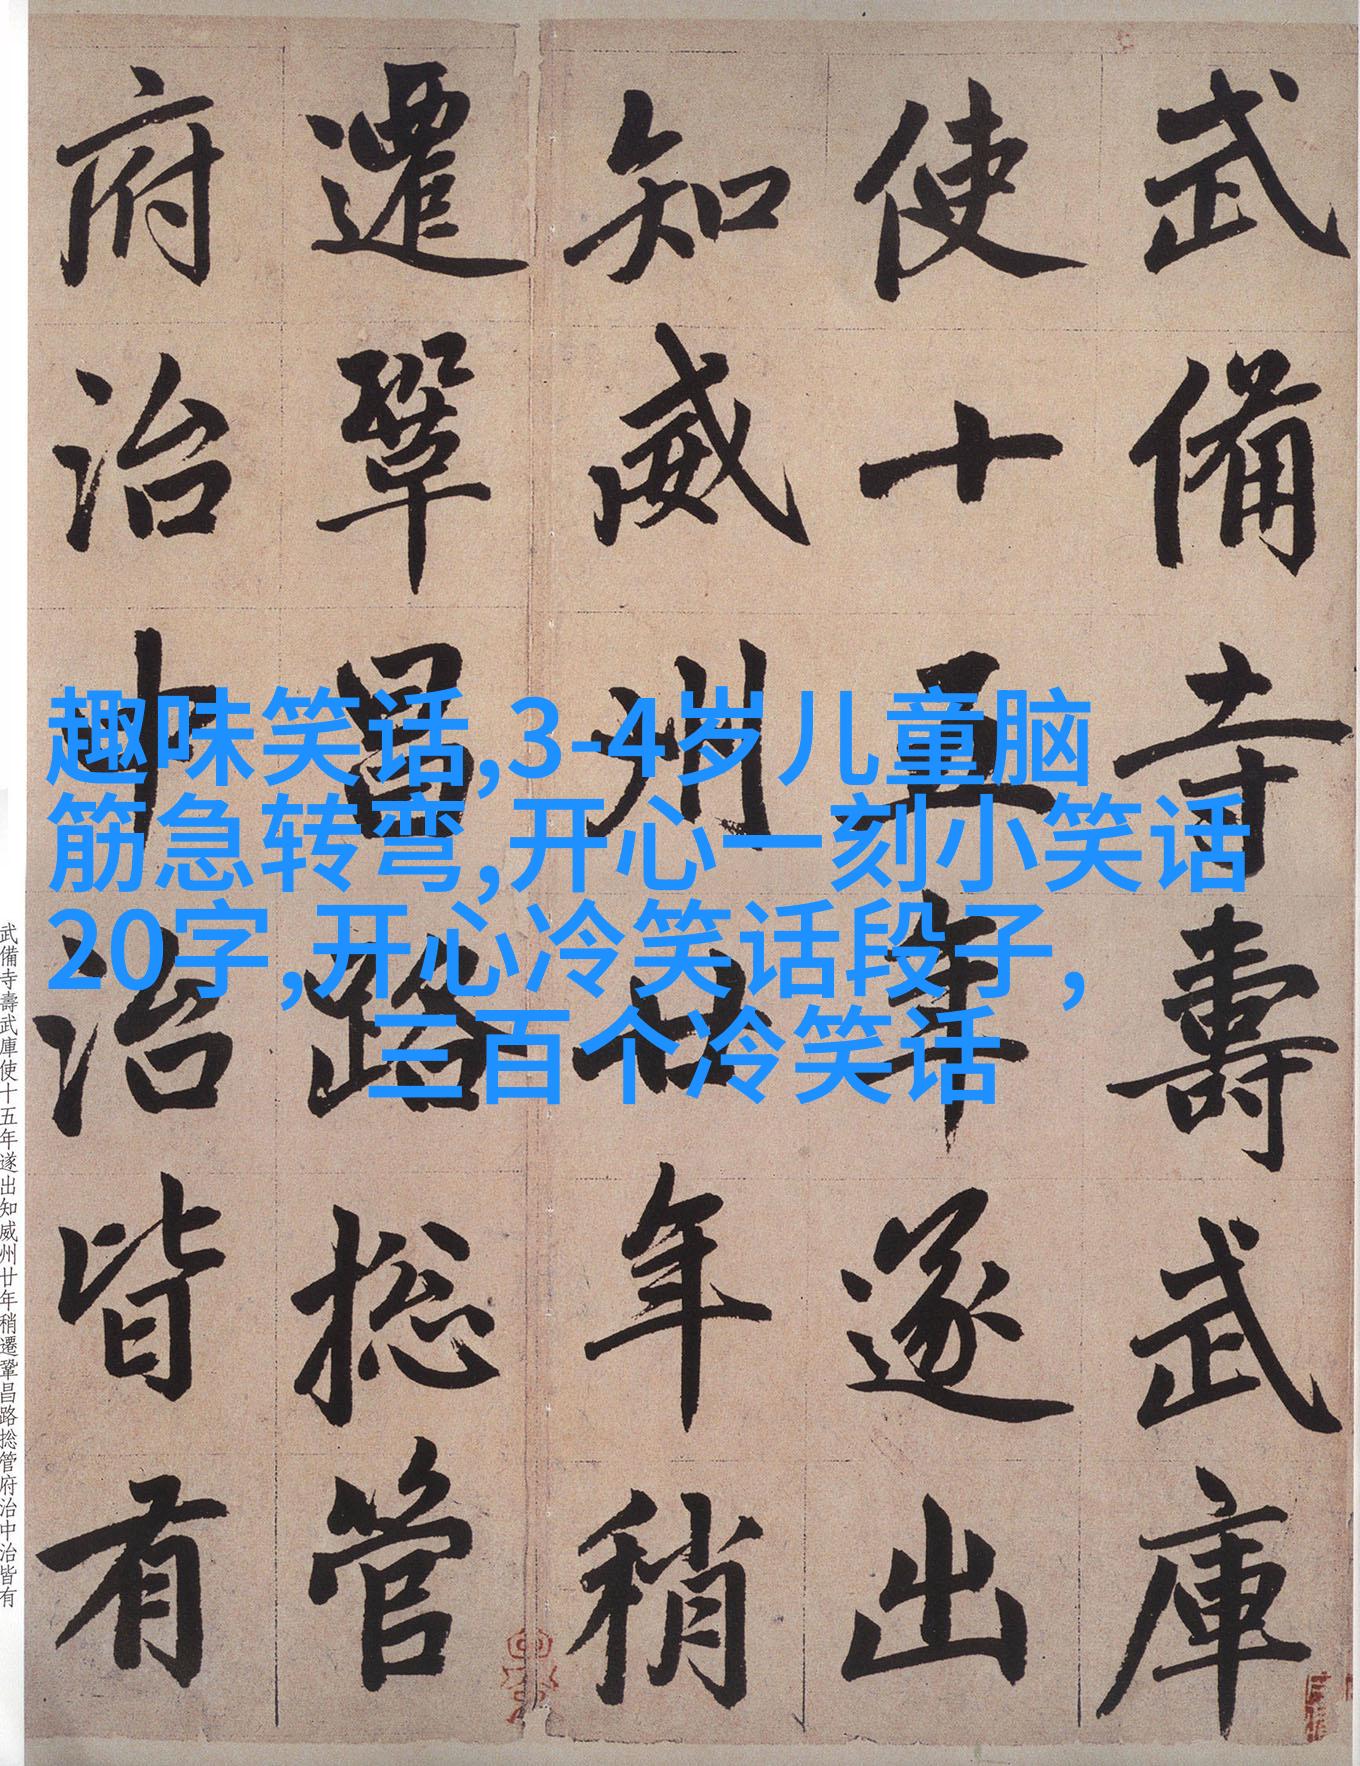 武備寺壽武庫
使十五年遂出
知威州廿年稍
遷鞏昌路捴管
府治中治皆有
趣味笑话,3-4岁儿童脑
筋急转弯,开心一刻小笑话
20字,开心冷笑话段子,
三百个冷笑话
武備寺壽武庫使十五年遂出知威州廿年稍遷鞏昌路捴管府治中治皆有